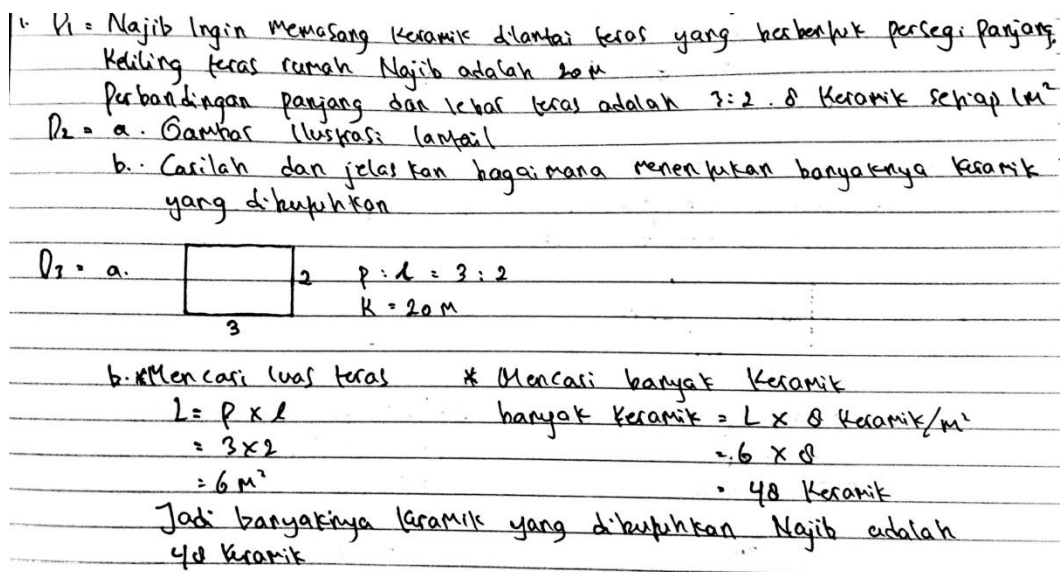 1. D1 = Najib Ingin Memasang Keramik dilantai teras yang berbentuk persegi panjang.
Keliling teras rumah Najib adalah 20 M
Perbandingan panjang dan lebar teras adalah 3:2. 8 Keramik setiap 1m²
D2 = a. Gambar Ilustrasi lantai!
b. Carilah dan jelaskan bagaimana menentukan banyaknya keramik
yang dibutuhkan
D3 = a. 2 p : l = 3 : 2
K = 20 M
3
b. *Mencari luas teras * Mencari banyak Keramik
L = p x l banyak keramik = L x 8 Keramik/m²
= 3 x 2 = 6 x 8
= 6 M² = 48 Keramik
Jadi banyaknya keramik yang dibutuhkan Najib adalah
48 keramik